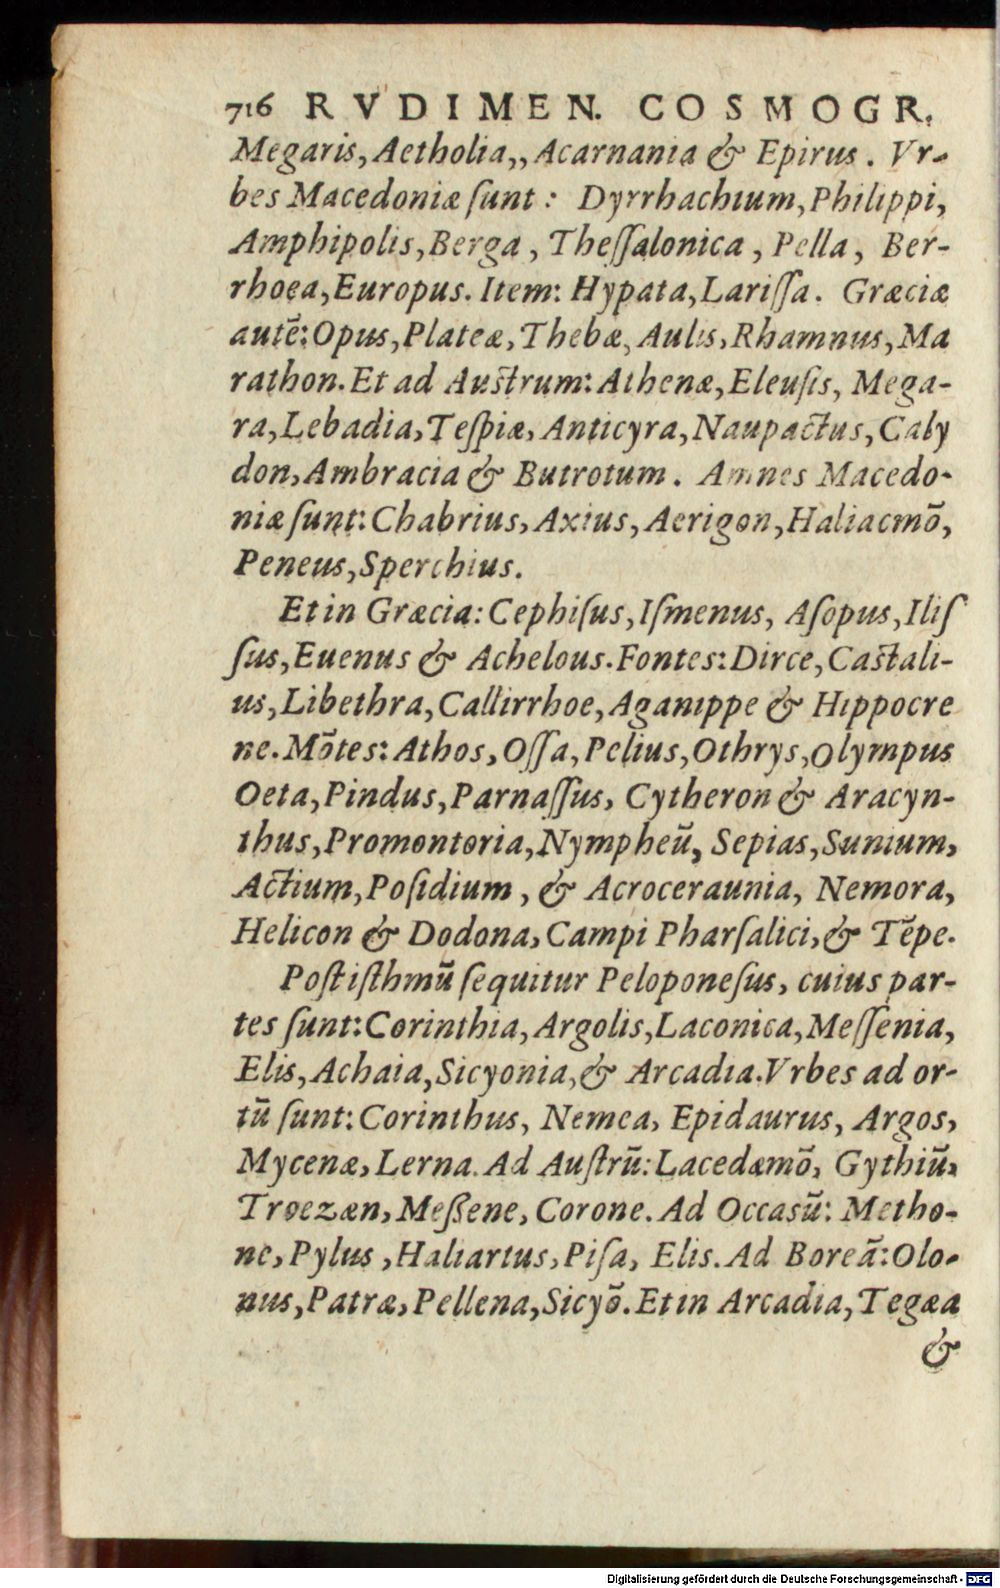 716 RVDIMEN. COSMOGR.
Megaris, Aetholia,, Acarnania & Epirus. Vr-
bes Macedoniæ ſunt: Dyrrhachium, Philippi,
Amphipolis, Berga, Theſſalonica, Pella, Ber-
rhoea, Europus. Item: Hypata, Lariſſa. Græciæ
autē: Opus, Plateæ, Thebæ, Aulis, Rhamnus, Ma
rathon. Et ad Auſtrum: Athenæ, Eleuſis, Mega-
ra, Lebadia, Teſpiæ, Anticyra, Naupactus, Caly
don, Ambracia & Butrotum. Amnes Macedo-
niæ ſunt: Chabrius, Axius, Aerigon, Haliacmō,
Peneus, Sperchius.
Et in Græcia: Cephiſus, Iſmenus, Aſopus, Iliſ
ſus, Euenus & Achelous. Fontes: Dirce, Caſtali-
us, Libethra, Callirrhoe, Aganippe & Hippocre
ne. Mōtes: Athos, Oſſa, Pelius, Othrys, Olympus
Oeta, Pindus, Parnaſſus, Cytheron & Aracyn-
thus, Promontoria, Nympheū, Sepias, Sunium,
Actium, Poſidium, & Acroceraunia, Nemora,
Helicon & Dodona, Campi Pharſalici, & Tēpe.
Poſt iſthmū ſequitur Peloponeſus, cuius par-
tes ſunt: Corinthia, Argolis, Laconica, Meſſenia,
Elis, Achaia, Sicyonia, & Arcadia. Vrbes ad or-
tū ſunt: Corinthus, Nemea, Epidaurus, Argos,
Mycenæ, Lerna. Ad Auſtrū: Lacedæmō, Gythiū,
Troezæn, Meßene, Corone. Ad Occasū: Metho-
ne, Pylus, Haliartus, Piſa, Elis. Ad Boreā: Olo-
nus, Patræ, Pellena, Sicyō. Et in Arcadia, Tegæa
&
Digitalisierung gefördert durch die Deutsche Forschungsgemeinschaft - DFG